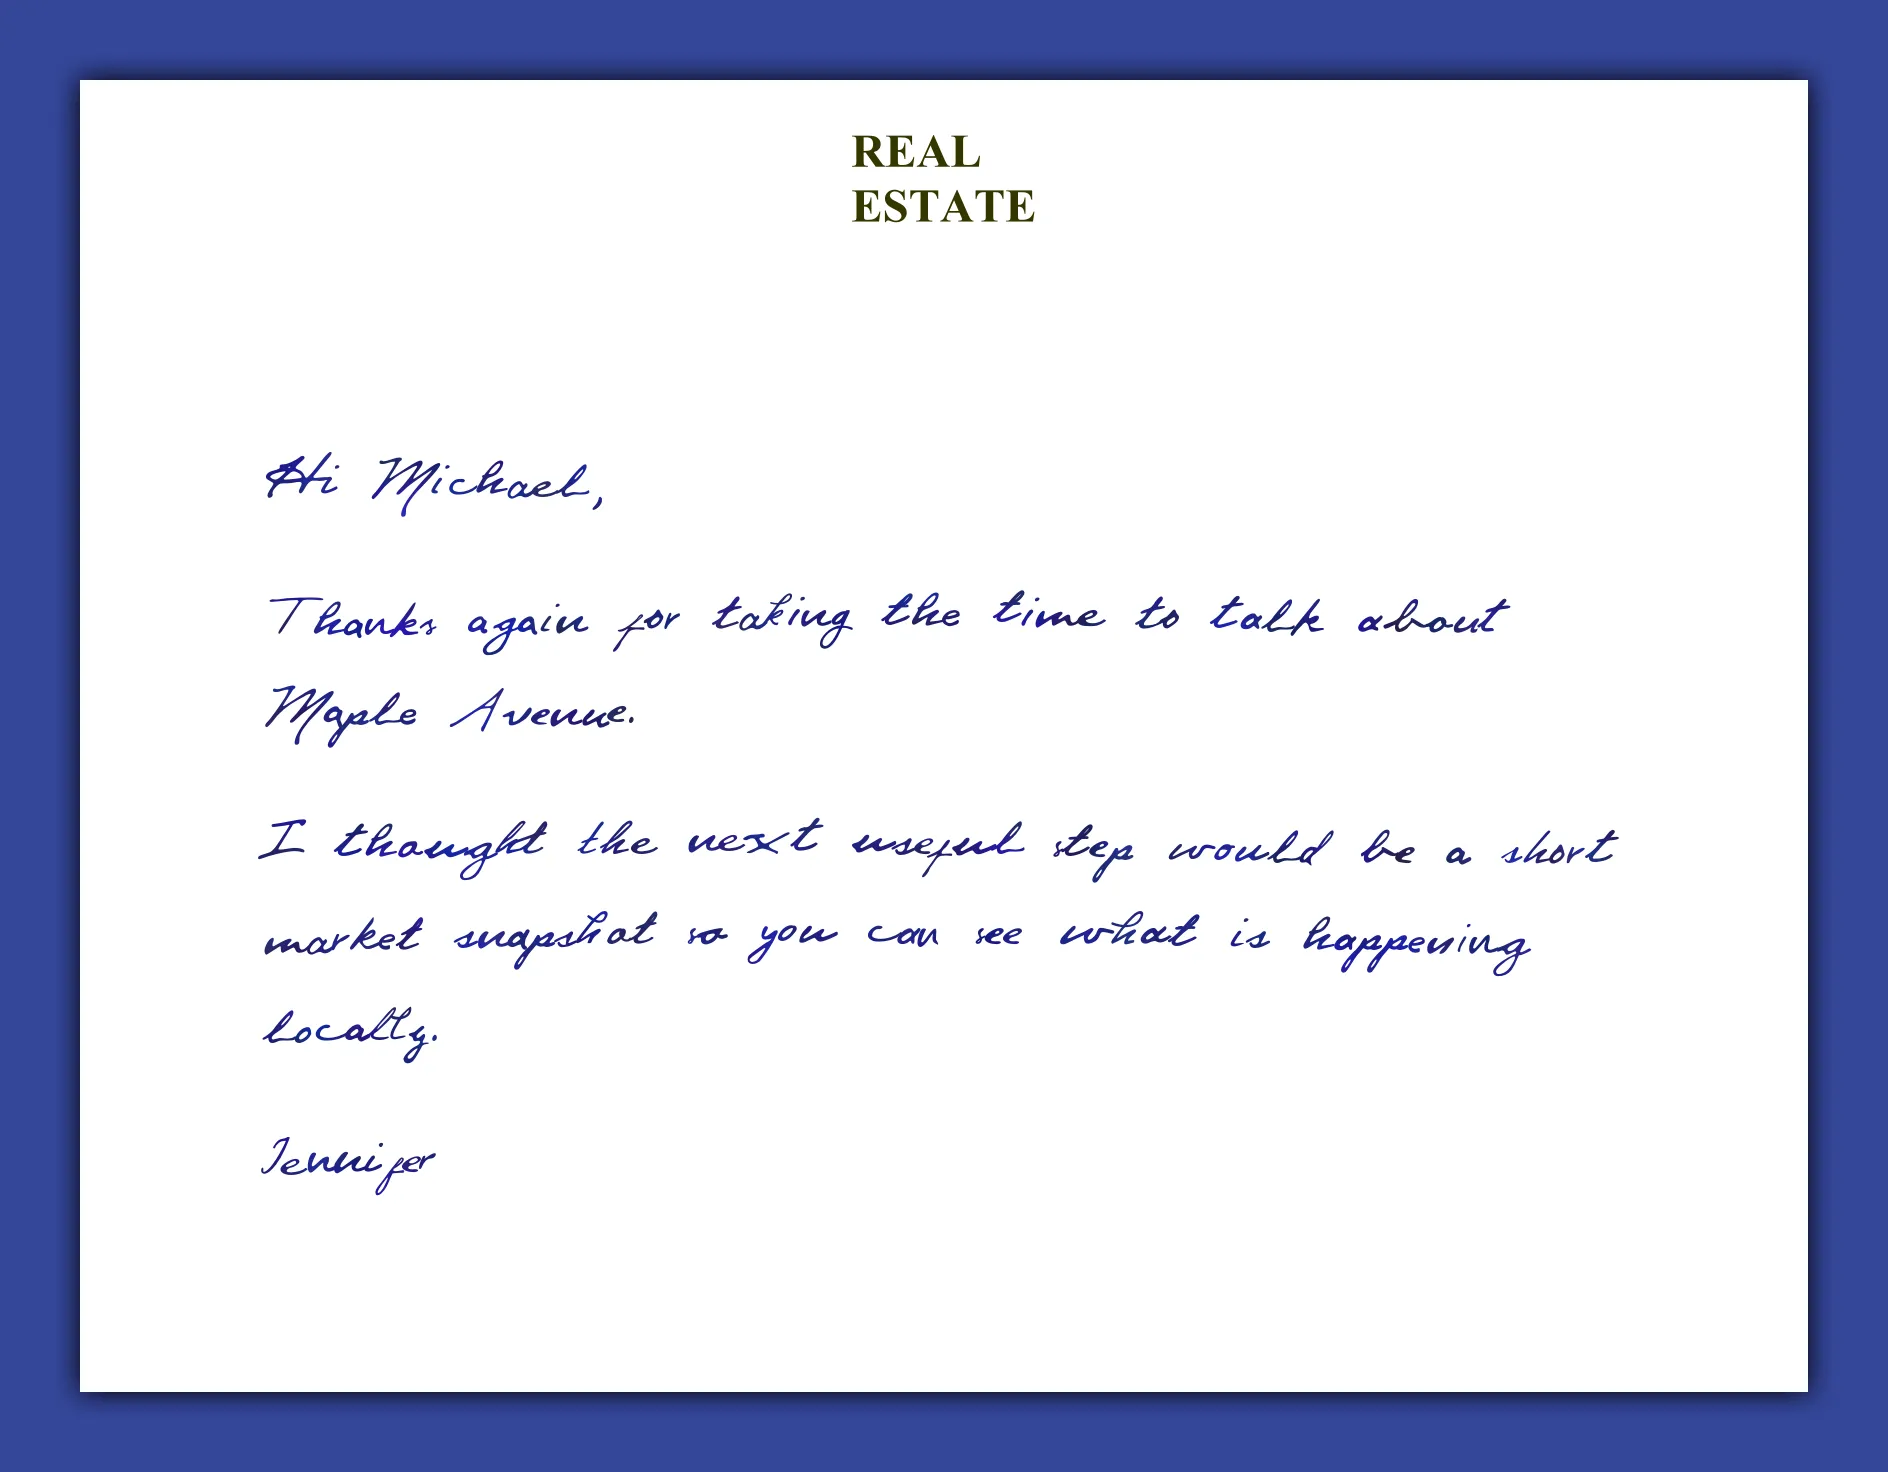 REAL
ESTATE
Hi Michael,
Thanks again for taking the time to talk about
Maple Avenue.
I thought the next useful step would be a short
market snapshot so you can see what is happening
locally.
Jennifer